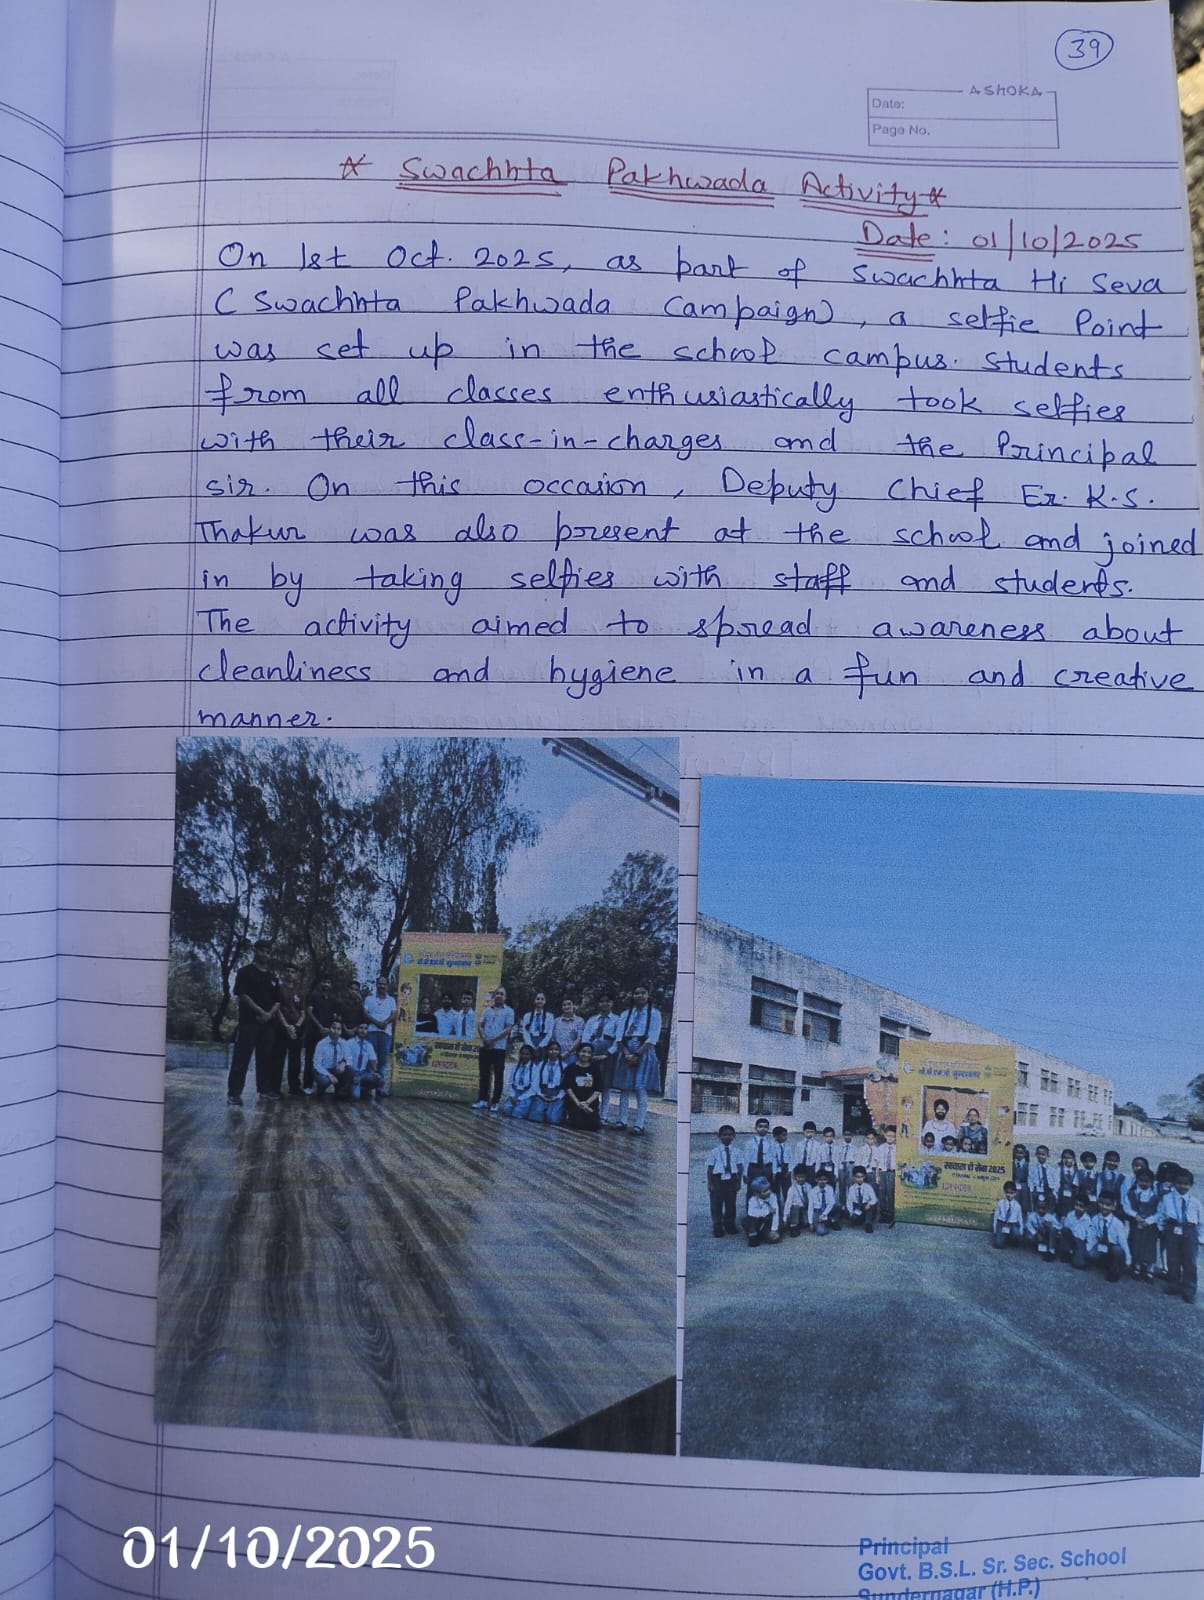 39
ASHOKA
Date:
Page No.
* Swachhta Pakhwada Activity *
Date: 01/10/2025
On 1st Oct. 2025, as part of Swachhta Hi Seva
(Swachhta Pakhwada Campaign), a selfie Point
was set up in the school campus. Students
from all classes enthusiastically took selfies
with their class-in-charges and the Principal
sir. On this occasion, Deputy Chief Er. K.S.
Thakur was also present at the school and joined
in by taking selfies with staff and students.
The activity aimed to spread awareness about
cleanliness and hygiene in a fun and creative
manner.
बी.बी.एम.बी. सुन्दरनगर
स्वच्छता ही सेवा 2025
बी.बी.एम.बी. सुन्दरनगर
स्वच्छता ही सेवा 2025
01/10/2025
Principal
Govt. B.S.L. Sr. Sec. School
Sundernagar (H.P.)